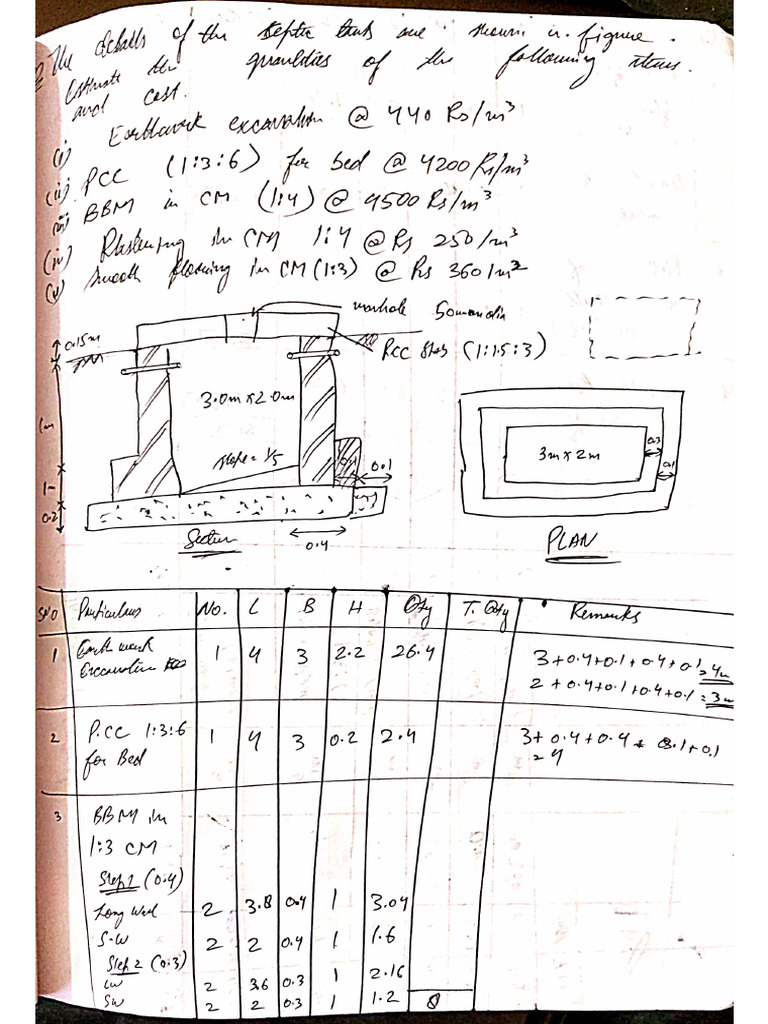 The details of the septic tank are shown in figure.
Estimate the quantities of the following items.
and cost.
(i) Earthwork excavation @ 440 Rs/m³
(ii) PCC (1:3:6) for bed @ 4200 Rs/m³
(iii) BBM in CM (1:4) @ 9500 Rs/m³
(iv) Plastering in CM 1:4 @ Rs 250/m³
(v) smooth flooring in CM (1:3) @ Rs 360/m²
manhole 50mm dia
RCC Slab (1:1.5:3)
0.15m
3.0m x 2.0m
1m
slope = 1/5
0.1
0.1
1m
0.2
0.4
Section
3m x 2m
0.3
0.1
PLAN
S.NO Particulars No. L B H Qty T. Qty Remarks
1 Earth work Excavation 1 4 3 2.2 26.4
3+0.4+0.1+0.4+0.1=4m
2+0.4+0.1+0.4+0.1=3m
2 P.CC 1:3:6 for Bed 1 4 3 0.2 2.4
3+0.4+0.4+0.1+0.1
=4
3 BBM in
1:3 CM
Step 1 (0.4)
Long Wall 2 3.8 0.4 1 3.04
S.W 2 2 0.4 1 1.6
Step 2 (0.3)
LW 2 3.6 0.3 1 2.16
SW 2 2 0.3 1 1.2 8